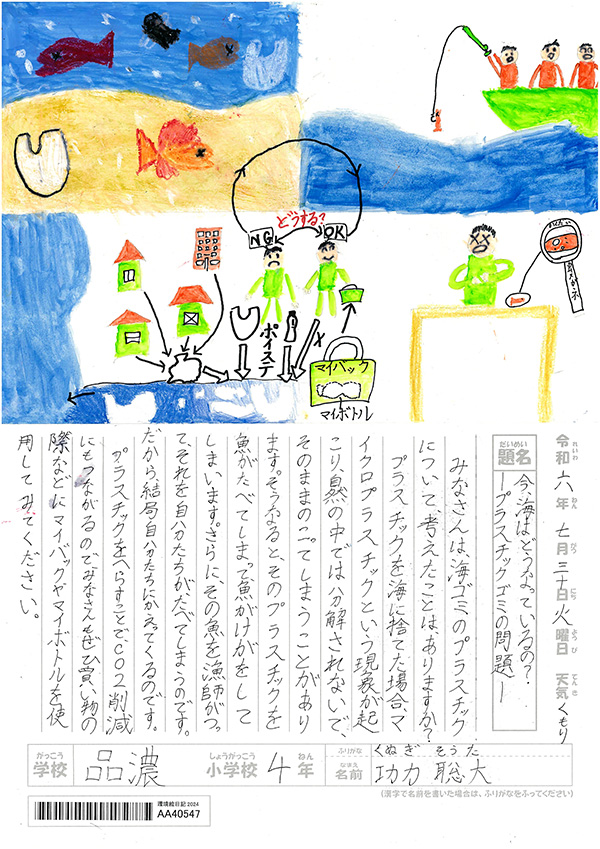 NG
どうする?
OK
ポイステ
マイバック
マイボトル
メガネ
令和六年七月三十日火曜日 天気くもり
れいわ ねん がつ にち ようび てんき
だいめい
題名
今、海はどうなっているの?
ープラスチックゴミの問題ー
みなさんは、海ゴミのプラスチック
について、考えたことは、ありますか?
プラスチックを海に捨てた場合マ
イクロプラスチックという現象が起
こり、自然の中では分解されないで、
そのままのこってしまうことがあり
ます。そうなると、そのプラスチックを
魚がたべてしまって魚がけがをして
しまいます。さらに、その魚を漁師がつっ
て、それを自分たちがたべてしまうのです。
だから結局自分たちにかえってくるのです。
プラスチックをへらすことで、CO2削減
にもつながるのでみなさんもぜひ買い物の
際などにマイバックやマイボトルを使
用してみてください。
がっこう しょうがっこう ねん
学校 品濃 小学校 4年
ふりがな くぬぎ そうた
なまえ
名前 功力 聡大
(漢字で名前を書いた場合は、ふりがなをふってください)
環境絵日記 2024
AA40547